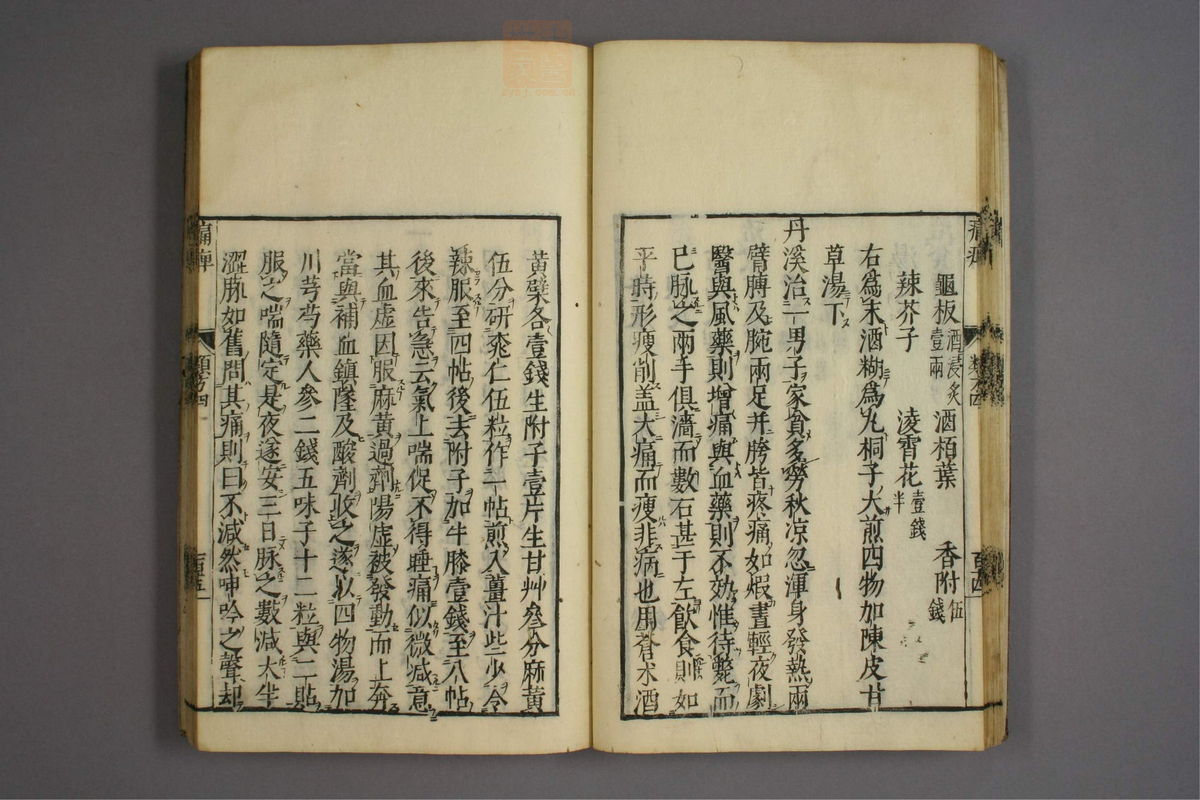 龜板酒浸炙壹兩 酒栢葉 香附伍錢
辣芥子 凌霄花壹錢半
右爲末酒糊爲丸桐子大煎四物加陳皮甘
草湯下
丹溪治一男子家貧多勞秋凉忽渾身發熱兩
臂膊及腕兩足并胯皆疼痛如煆晝輕夜劇
醫與風藥則增痛與血藥則不効惟待斃而
已脉之兩手俱濇而數右甚于左飮食則如
平時形瘦削盖大痛而瘦非病也用蒼朮酒
黃檗各壹錢生附子壹片生甘艸叁分麻黃
伍分研桃仁伍粒作一帖煎入薑汁些少令
辣服至四帖後去附子加牛膝壹錢至八帖
後來告急云氣上喘促不得睡痛似微减意
其血虛因服麻黃過劑陽虛被發動而上奔
當與補血鎮墜及酸劑收之遂以四物湯加
川芎芍藥人參二錢五味子十二粒與二貼
服之喘隨定是夜遂安三日脉之數减大半
濇脉如舊問其痛則曰不减然呻吟之聲却
痛痺
類方四
百五